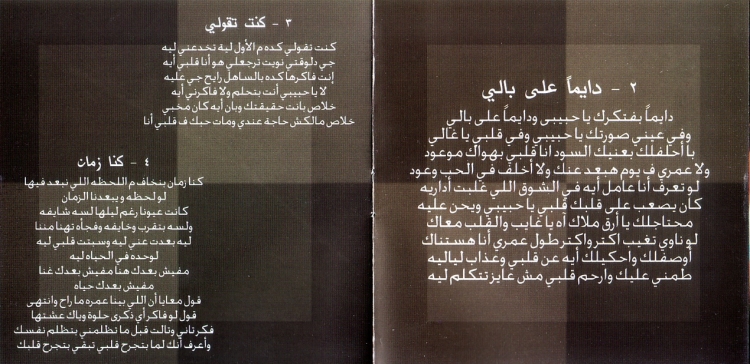 ٢ - دايماً على بالي
دايماً بفتكرك يا حبيبى ودايماً على بالي
وفي عيني صورتك يا حبيبي وفي قلبي يا غالي
با أحلفلك بعنيك السود انا قلبي بهواك موعود
ولا عمري ف يوم هبعد عنك ولا أخلف في الحب وعود
لو تعرف أنا عامل أيه في الشوق اللي غلبت أداريه
كان يصعب على قلبك قلبي يا حبيبي ويحن عليه
محتاجلك يا أرق ملاك آه يا غايب والقلب معاك
لو ناوي تغيب اكتر واكتر طول عمري أنا هستناك
أوصفلك واحكيلك أيه عن قلبي وعذاب لياليه
طمني عليك وارحم قلبي مش عايز تتكلم ليه
٣ - كنت تقولي
كنت تقولي كده م الأول لية تخدعني ليه
جي دلوقتي نويت ترجعلي هو أنا قلبي أيه
إنت فاكرها كده بالساهل رايح جي عليه
لا يا حبيبي أنت بتحلم ولا فاكرني أيه
خلاص بانت حقيقتك وبان أيه كان مخبي
خلاص مالكش حاجة عندي ومات حبك ف قلبي أنا
٤ - كنا زمان
كنا زمان بنخاف م اللحظه اللي نبعد فيها
لو لحظه و يبعدنا الزمان
كانت عيونا رغم ليلها لسه شايفه
ولسه بتقرب وخايفه وفجأه تهنا مننا
ليه بعدت عني ليه وسبتت قلبي ليه
لوحده في الحياه ليه
مفيش بعدك هنا مفيش بعدك غنا
مفيش بعدك حياه
قول معايا أن اللي بينا عمره ما راح وانتهى
قول لو فاكر أي ذكرى حلوة وياك عشتها
فكر تاني وتالت قبل ما تظلمني بتظلم نفسك
وأعرف أنك لما بتجرح قلبي تبقى بتجرح قلبك